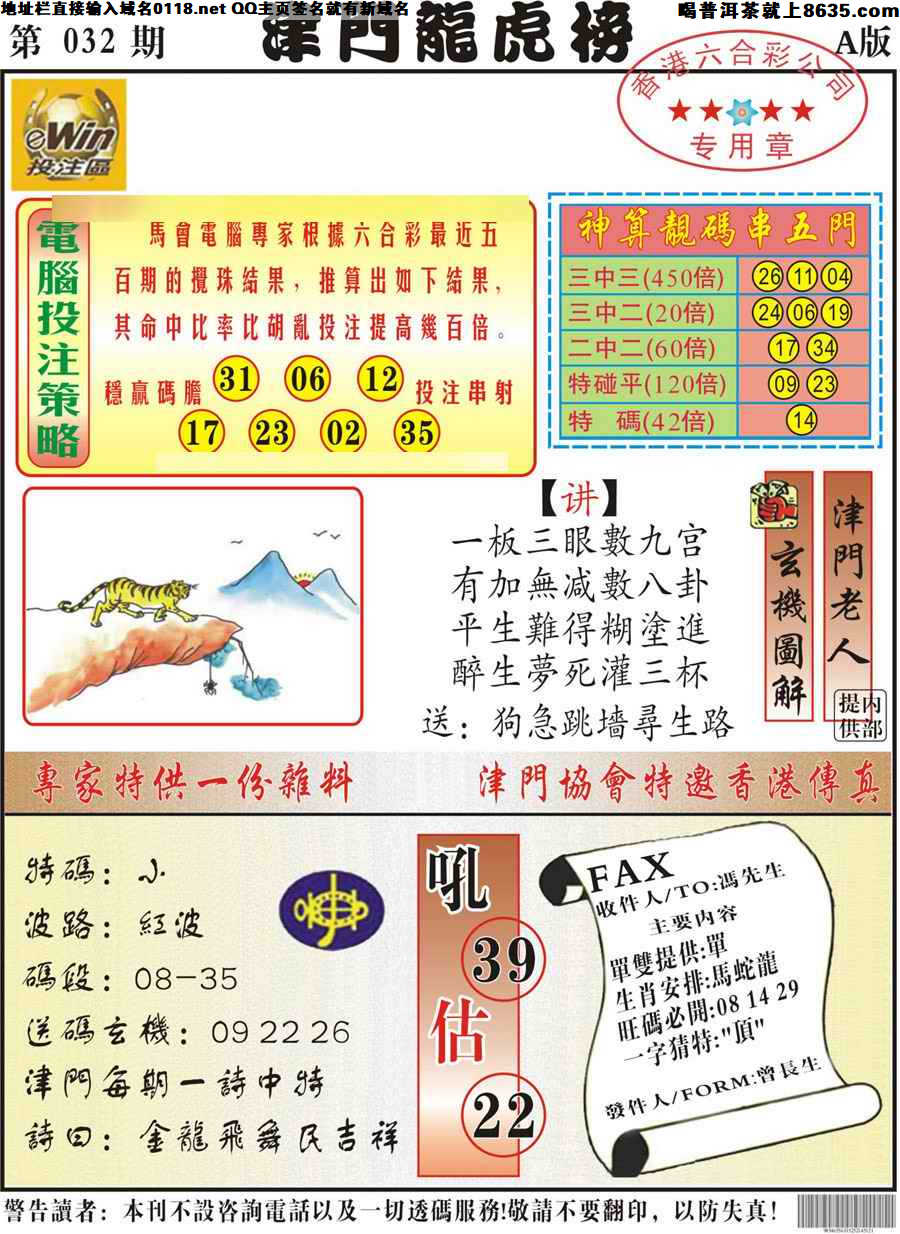 地址栏直接输入域名0118.net QQ主页签名就有新域名
喝普洱茶就上8635.com
第 032 期
津門龍虎榜
A版
香港六合彩公司
专用章
eWin
投注區
電腦投注策略
馬會電腦專家根據六合彩最近五
百期的攪珠結果，推算出如下結果，
其命中比率比胡亂投注提高幾百倍。
穩贏碼膽 31 06 12 投注串射
17 23 02 35
神算靚碼串五門
三中三(450倍) 26 11 04
三中二(20倍) 24 06 19
二中二(60倍) 17 34
特碰平(120倍) 09 23
特 碼(42倍) 14
【讲】
一板三眼數九宫
有加無减數八卦
平生難得糊塗進
醉生夢死灌三杯
送：狗急跳墙尋生路
玄機圖解
津門老人
内部提供
專家特供一份雜料
津門協會特邀香港傳真
特碼：小
波路：紅波
碼段：08-35
送碼玄機：09 22 26
津門每期一詩中特
詩曰：金龍飛舞民吉祥
吼
39
估
22
FAX
收件人/TO:馮先生
主要内容
單雙提供:單
生肖安排:馬蛇龍
旺碼必開:08 14 29
一字猜特:"頂"
發件人/FORM:曾長生
警告讀者：本刊不設咨詢電話以及一切透碼服務!敬請不要翻印，以防失真!